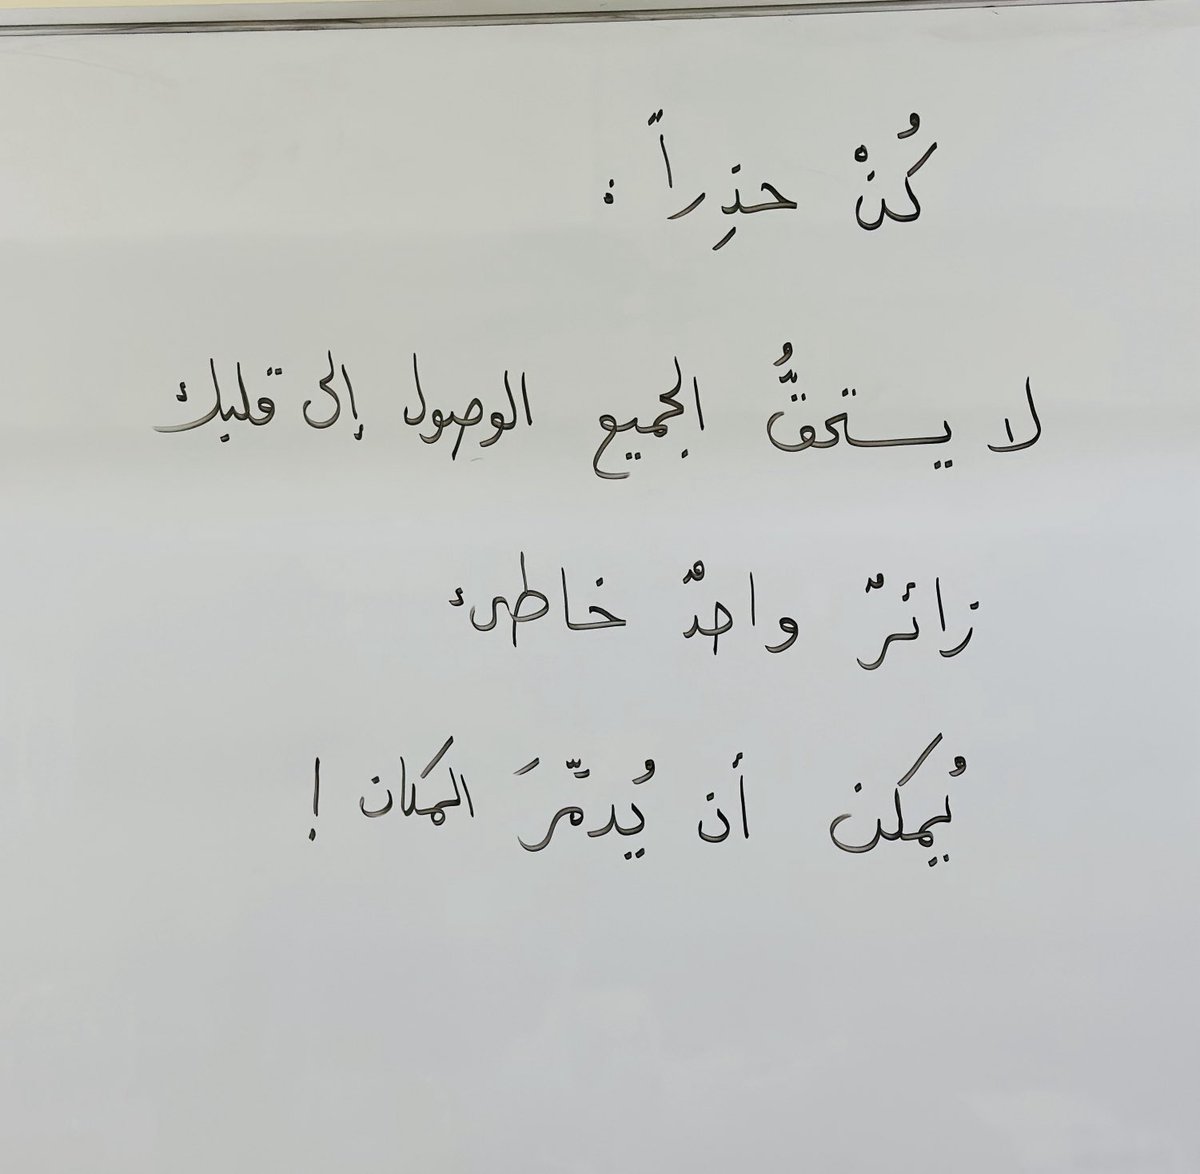 كُنْ حذِراً :
لا يستحقُّ الجميع الوصول إلى قلبك
زائرٌ واحدٌ خاطىء
يُمكن أن يُدمّرَ المكان !